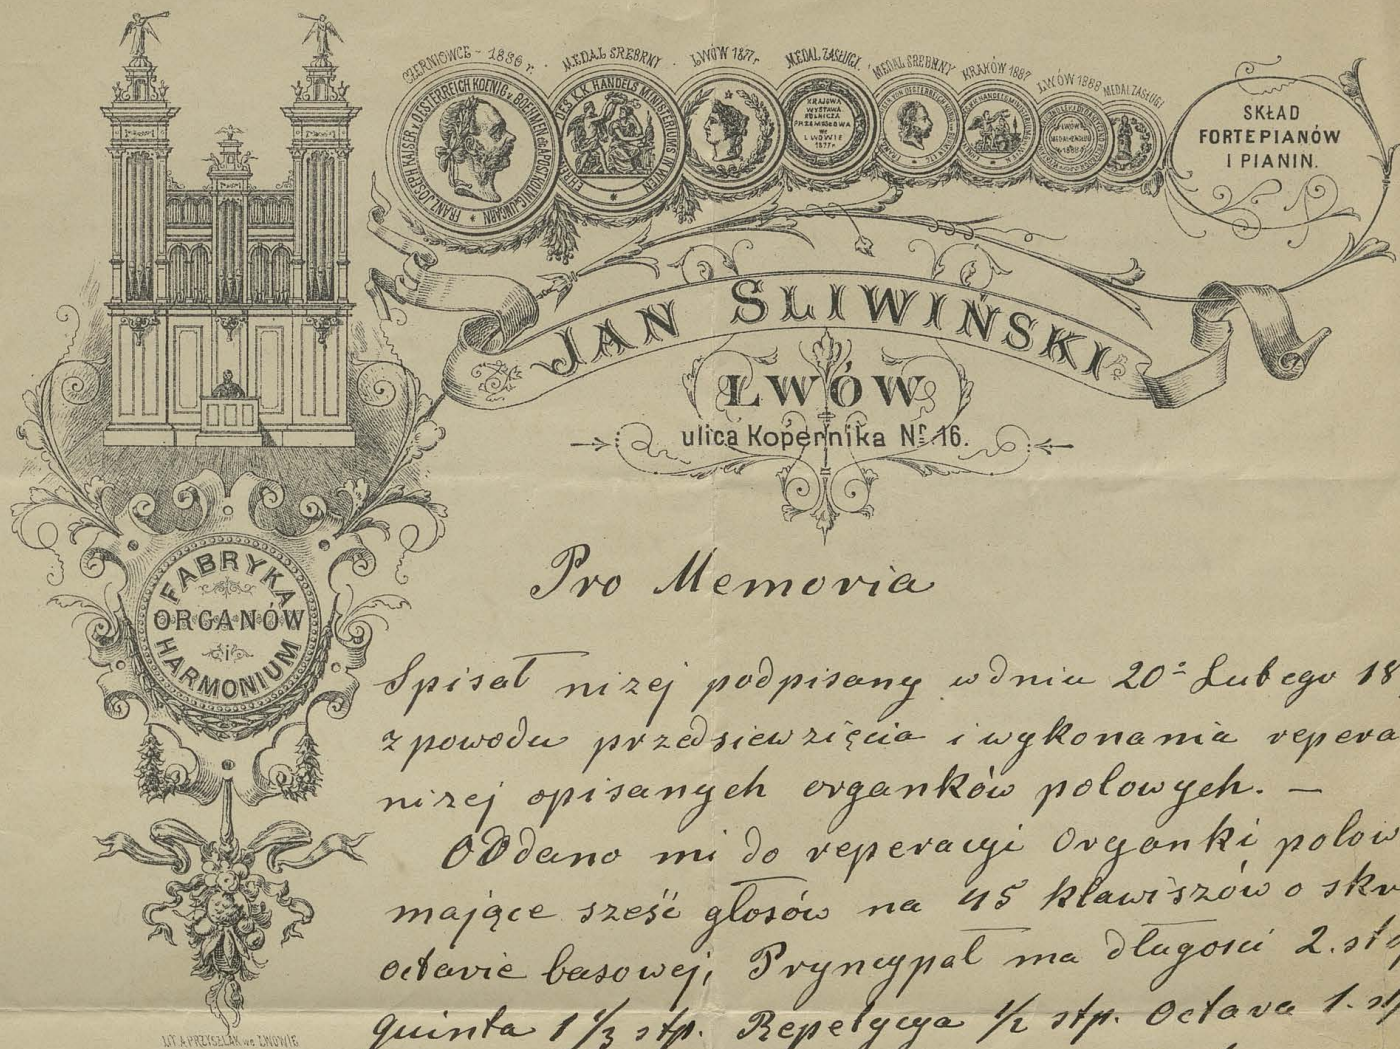 CZERNIOWCE - 1886 r.
MEDAL SREBRNY
LWÓW 1877r.
MEDAL ZASŁUGI
MEDAL SREBRNY
KRAKÓW 1887
LWÓW 1888
MEDAL ZASŁUGI
FRANZ JOSEPH I KAISER v. OESTERREICH KOENIG v. BOEHMEN etc. APOST. KÖNIG v. UNGARN
DES K.K. HANDELS MINISTERIUMS IN WIEN
KRAJOWA
WYSTAWA
ROLNICZA
PRZEMYSŁOWA
we
LWOWIE
1877r.
SKŁAD
FORTEPIANÓW
I PIANIN.
JAN ŚLIWIŃSKI
LWÓW
ulica Kopernika Nr. 16.
FABRYKA
ORGANÓW
i
HARMONIUM
Pro Memoria
Spisał nizej podpisany w dniu 20º Lutego 18
z powodu przedsiewzięcia i wykonania repera
nizej opisanych organków polowych. —
Oddano mi do reperacyi Organki polow
mające sześć głosów na 45 kławiszów o skr
octavie basowej, Pryncypał ma długosci 2. stp
quinta 1 1/3 stp. Repetycya 1/2 stp. Octava 1. st
LIT. A. PRZYSZLAK we LWOWIE